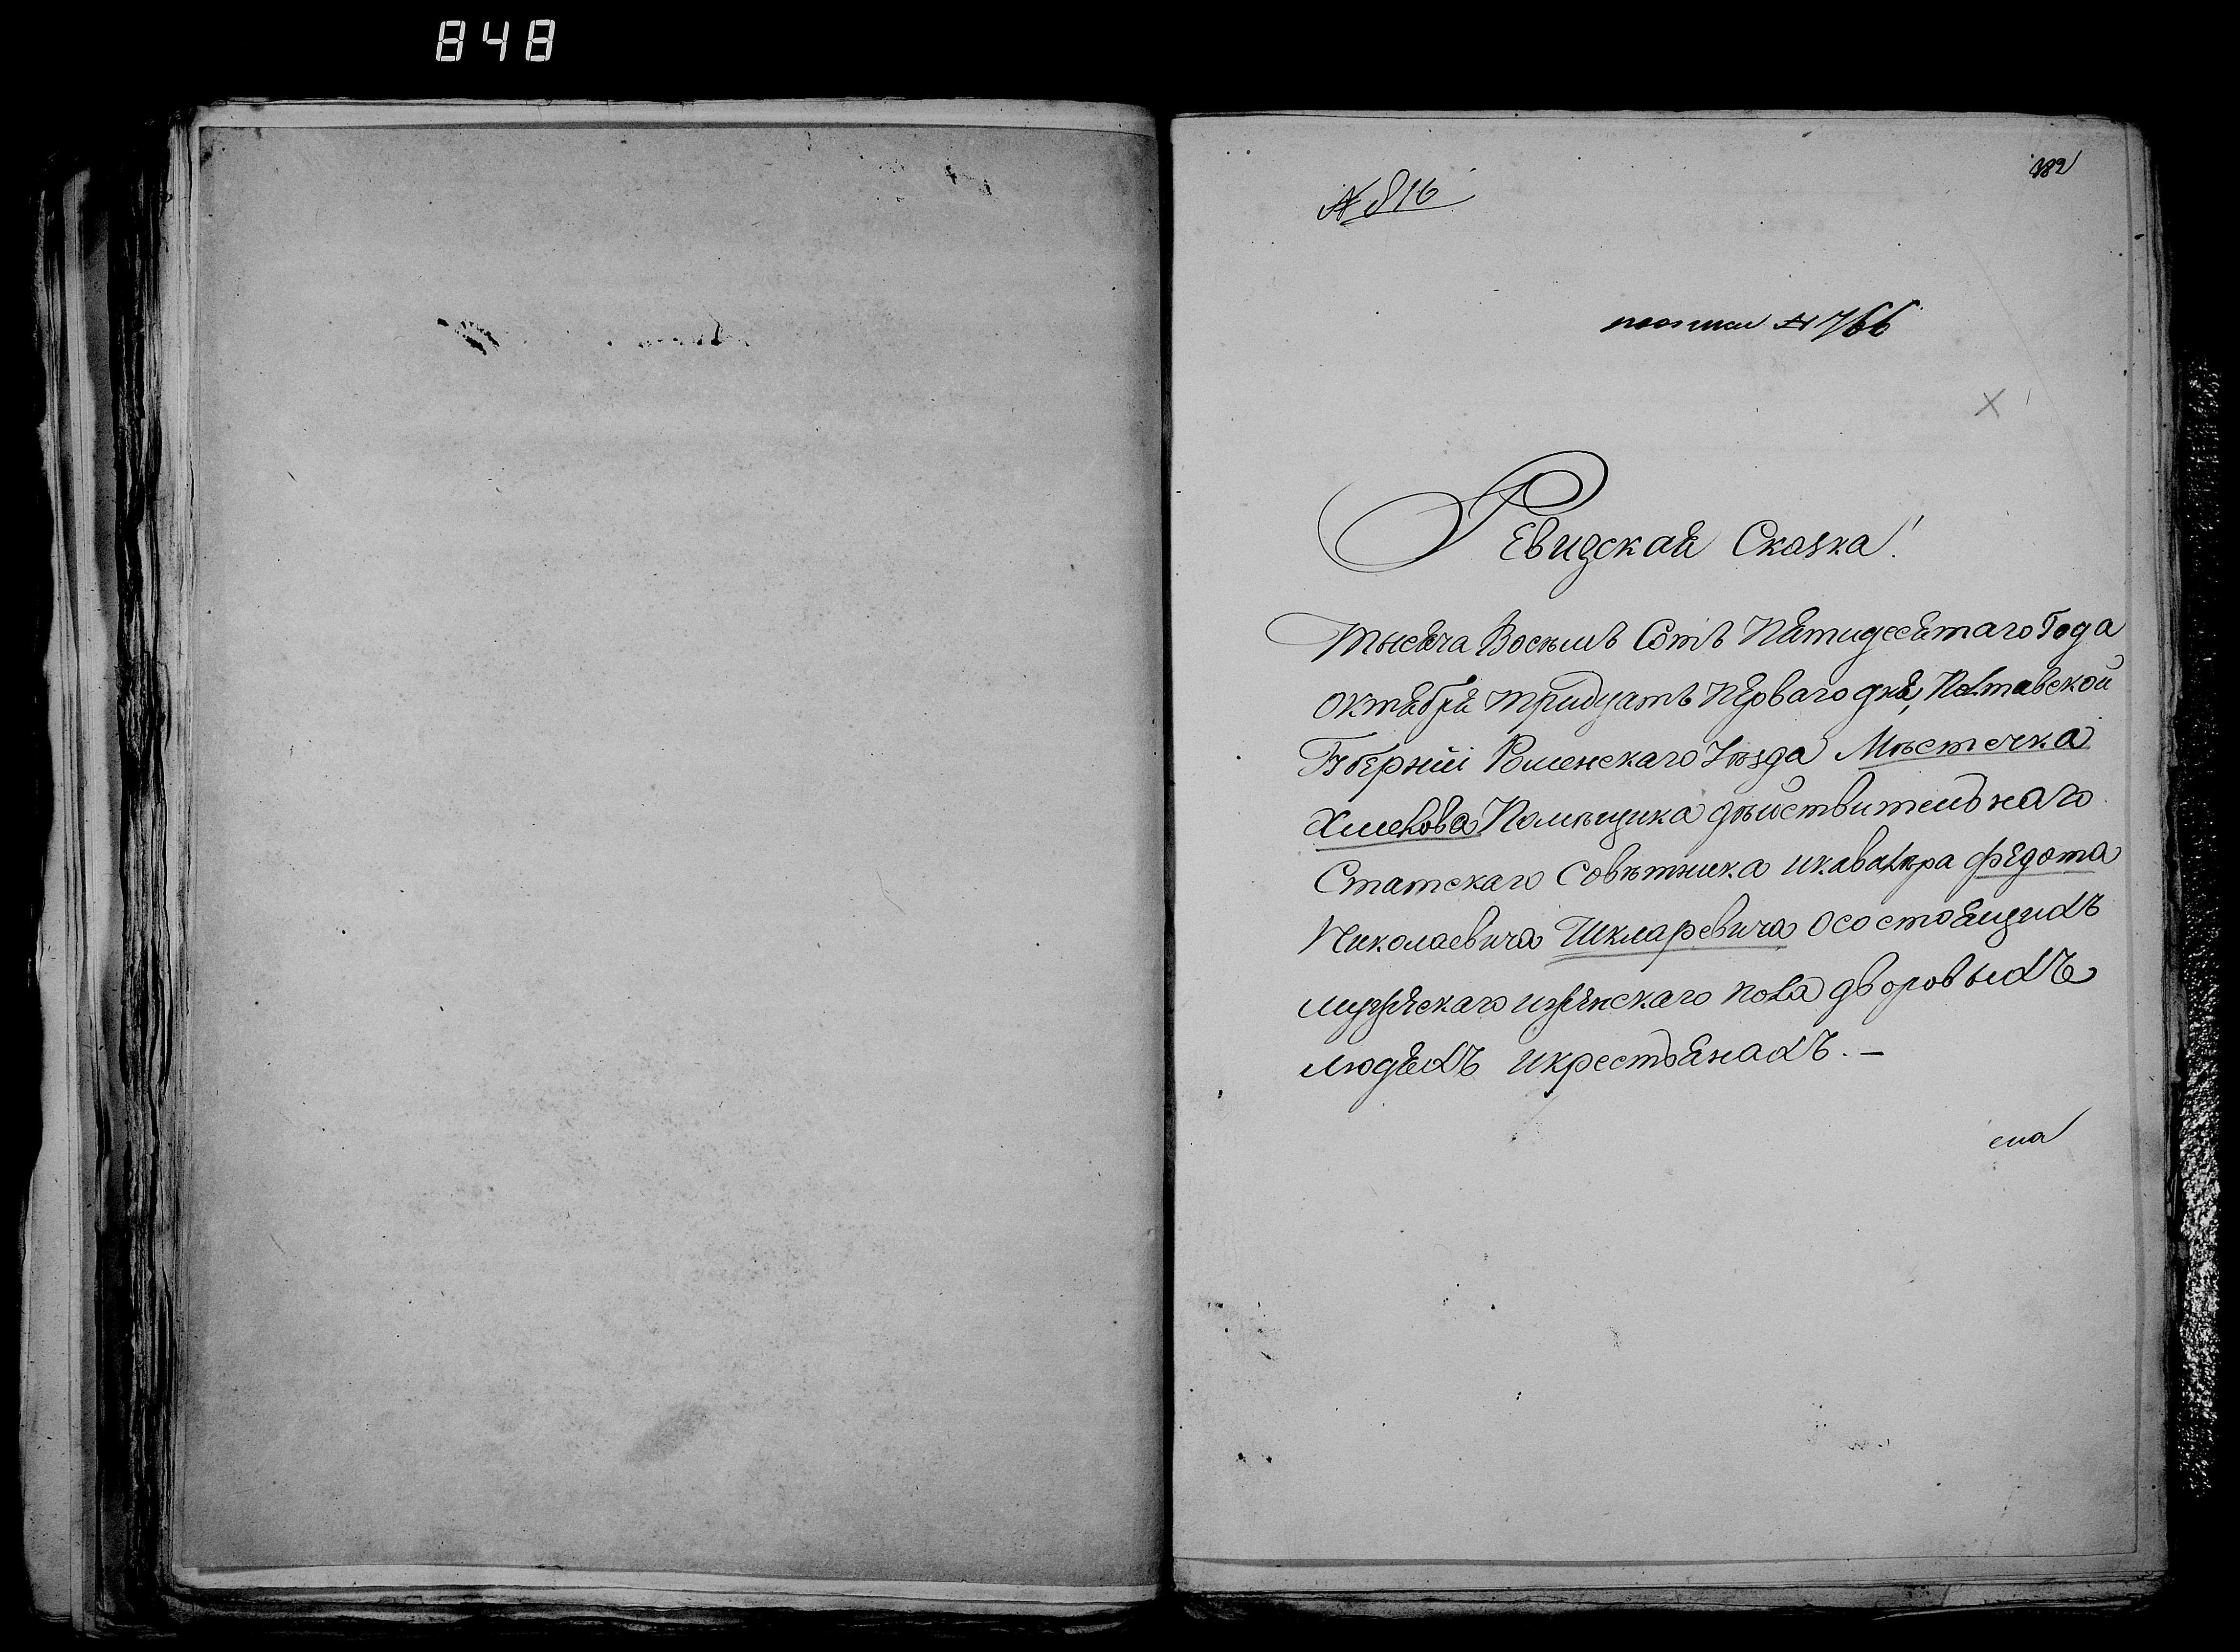 848
182
№ 816
№ 766
Ревизская Сказка!
Тысяча Восемь Сотъ Пятидесятаго Года
Октября тридцать Перваго дня, Полтавской
Губерніи Роменскаго Уѣзда Мѣстечка
Хмелова Помѣщика дѣйствительнаго
Статскаго Совѣтника и кавалера Федота
Николаевича Шкларевича о состоящихъ
мужескаго и женскаго пола дворовыхъ
людяхъ и крестьянахъ. —